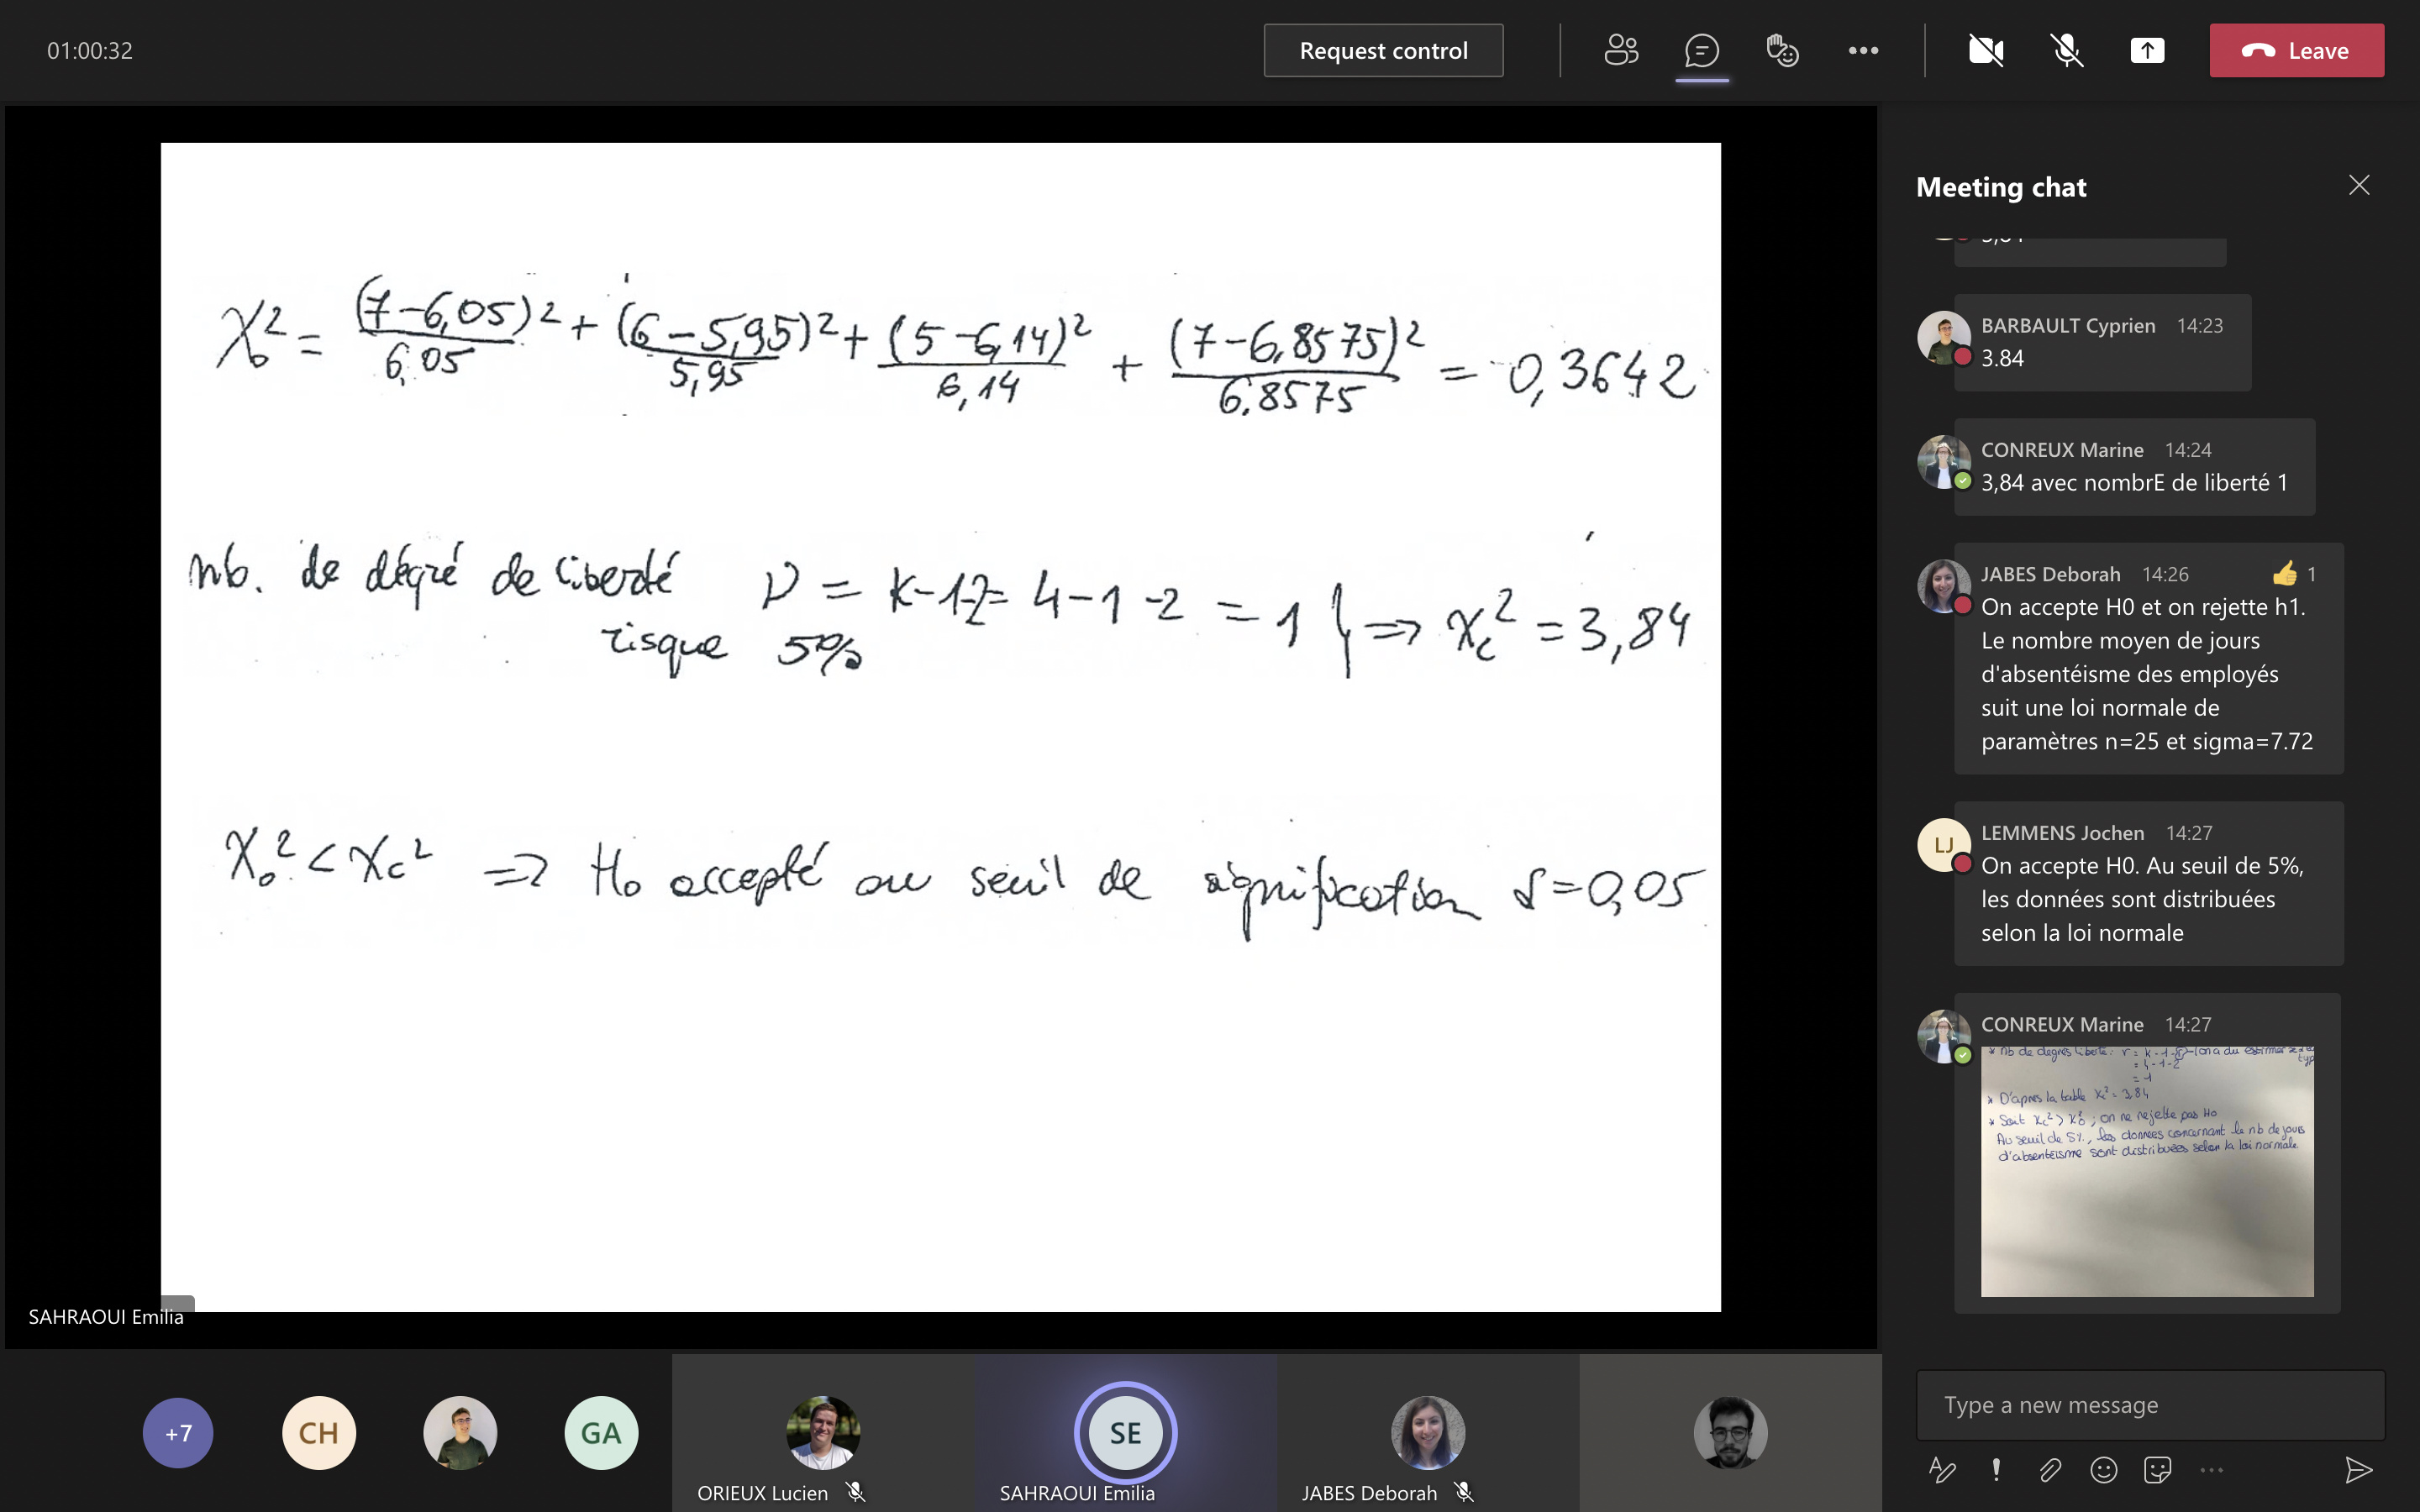 01:00:32
Request control
Leave
χ₀² = (7-6,05)²/6,05 + (6-5,95)²/5,95 + (5-6,14)²/6,14 + (7-6,8575)²/6,8575 = 0,3642
nb. de dégré de liberté ν = k-1-2= 4-1-2 = 1 } ⇒ χc² = 3,84
risque 5%
χ₀² < χc² ⇒ H₀ accepté au seuil de signification δ=0,05
SAHRAOUI Emilia
+7
CH
GA
ORIEUX Lucien
SE
SAHRAOUI Emilia
JABES Deborah
Meeting chat
BARBAULT Cyprien 14:23
3.84
CONREUX Marine 14:24
3,84 avec nombrE de liberté 1
JABES Deborah 14:26 👍 1
On accepte H0 et on rejette h1.
Le nombre moyen de jours
d'absentéisme des employés
suit une loi normale de
paramètres n=25 et sigma=7.72
LJ
LEMMENS Jochen 14:27
On accepte H0. Au seuil de 5%,
les données sont distribuées
selon la loi normale
CONREUX Marine 14:27
* nb de degrés liberté : ν = k-1-2 on a du estimer
= 4-1-2
= 1
* D'après la table χc² = 3,84
* Soit χc² > χ₀² ; on ne rejette pas H₀
Au seuil de 5%, les données concernant le nb de jours
d'absentéisme sont distribuées selon la loi normale.
Type a new message